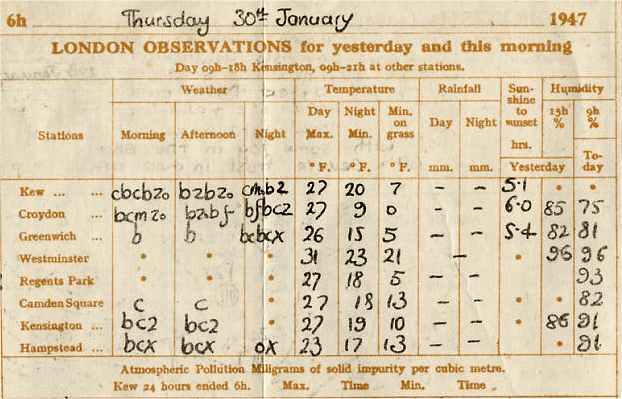 6h Thursday 30th January 1947
LONDON OBSERVATIONS for yesterday and this morning
Day 09h-18h Kensington, 09h-21h at other stations.
Stations Weather Temperature Rainfall Sunshine to sunset hrs. Humidity
Morning Afternoon Night Day Max. °F. Night Min. °F. Min. on grass °F. Day mm. Night mm. Yesterday 13h % 9h % To-day
Kew ... ... cbcbz₀ bzbz₀ 27 20 7 – – 5·1 • •
Croydon ... bcmz₀ bz₀bf bfbcz 27 9 0 – – 6·0 85 75
Greenwich ... b b bcbcx 26 15 5 – – 5·4 82 81
Westminster • • • 31 23 21 – • 96 96
Regents Park • • • 27 18 5 – – 93
Camden Square c c 27 18 13 – – • • 82
Kensington ... bcz bcz 27 19 10 – – • 86 91
Hampstead ... bcx bcx ox 23 17 13 – – • • 91
Atmospheric Pollution Miligrams of solid impurity per cubic metre.
Kew 24 hours ended 6h. Max. Time Min. Time .